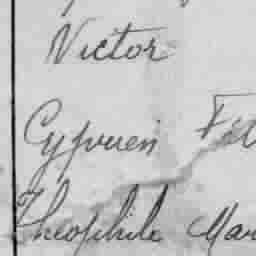 Victor
Cyprien
Théophile Mar